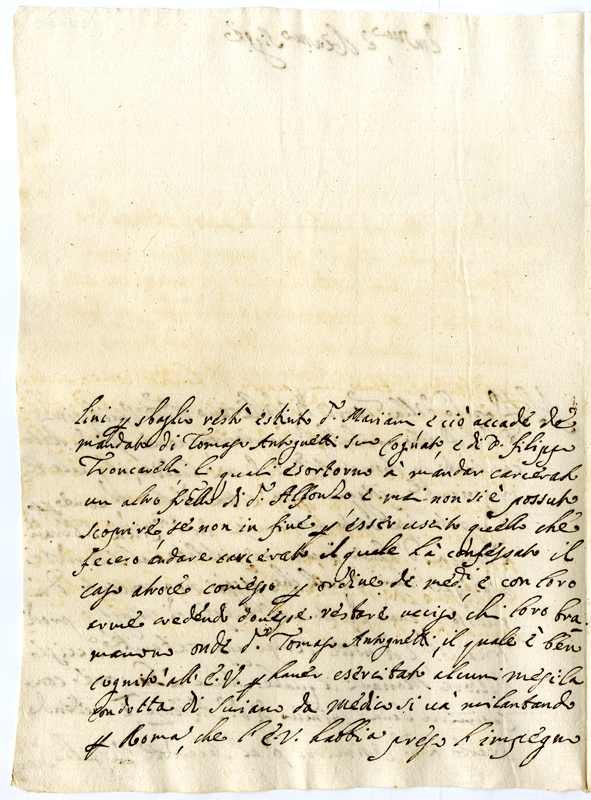 lini p sbaglio restò estinto d.º Mariani e ciò accade de
mandato di Tomaso Antognetti suo Cognato, e di D. Filippo
Troncarelli li quali esortorno à mandar carcerato
un altro frello di d.º Alfonzo e mai non si è possuto
scoprire, se non in fine p esser uscito quello che
fecero andare carcerato il quale hà confessato il
caso atroce comesso p ordine de med.i e con loro
arme credendo dovesse restare ucciso, chi loro bra-
mavono onde d.º Tomaso Antognetti, il quale è ben
cognito all' E.V. p haver esercitato alcuni mesi la
condotta di Suriano da medico si và milantando
p Roma, che l' E.V. habbia preso l' impegno